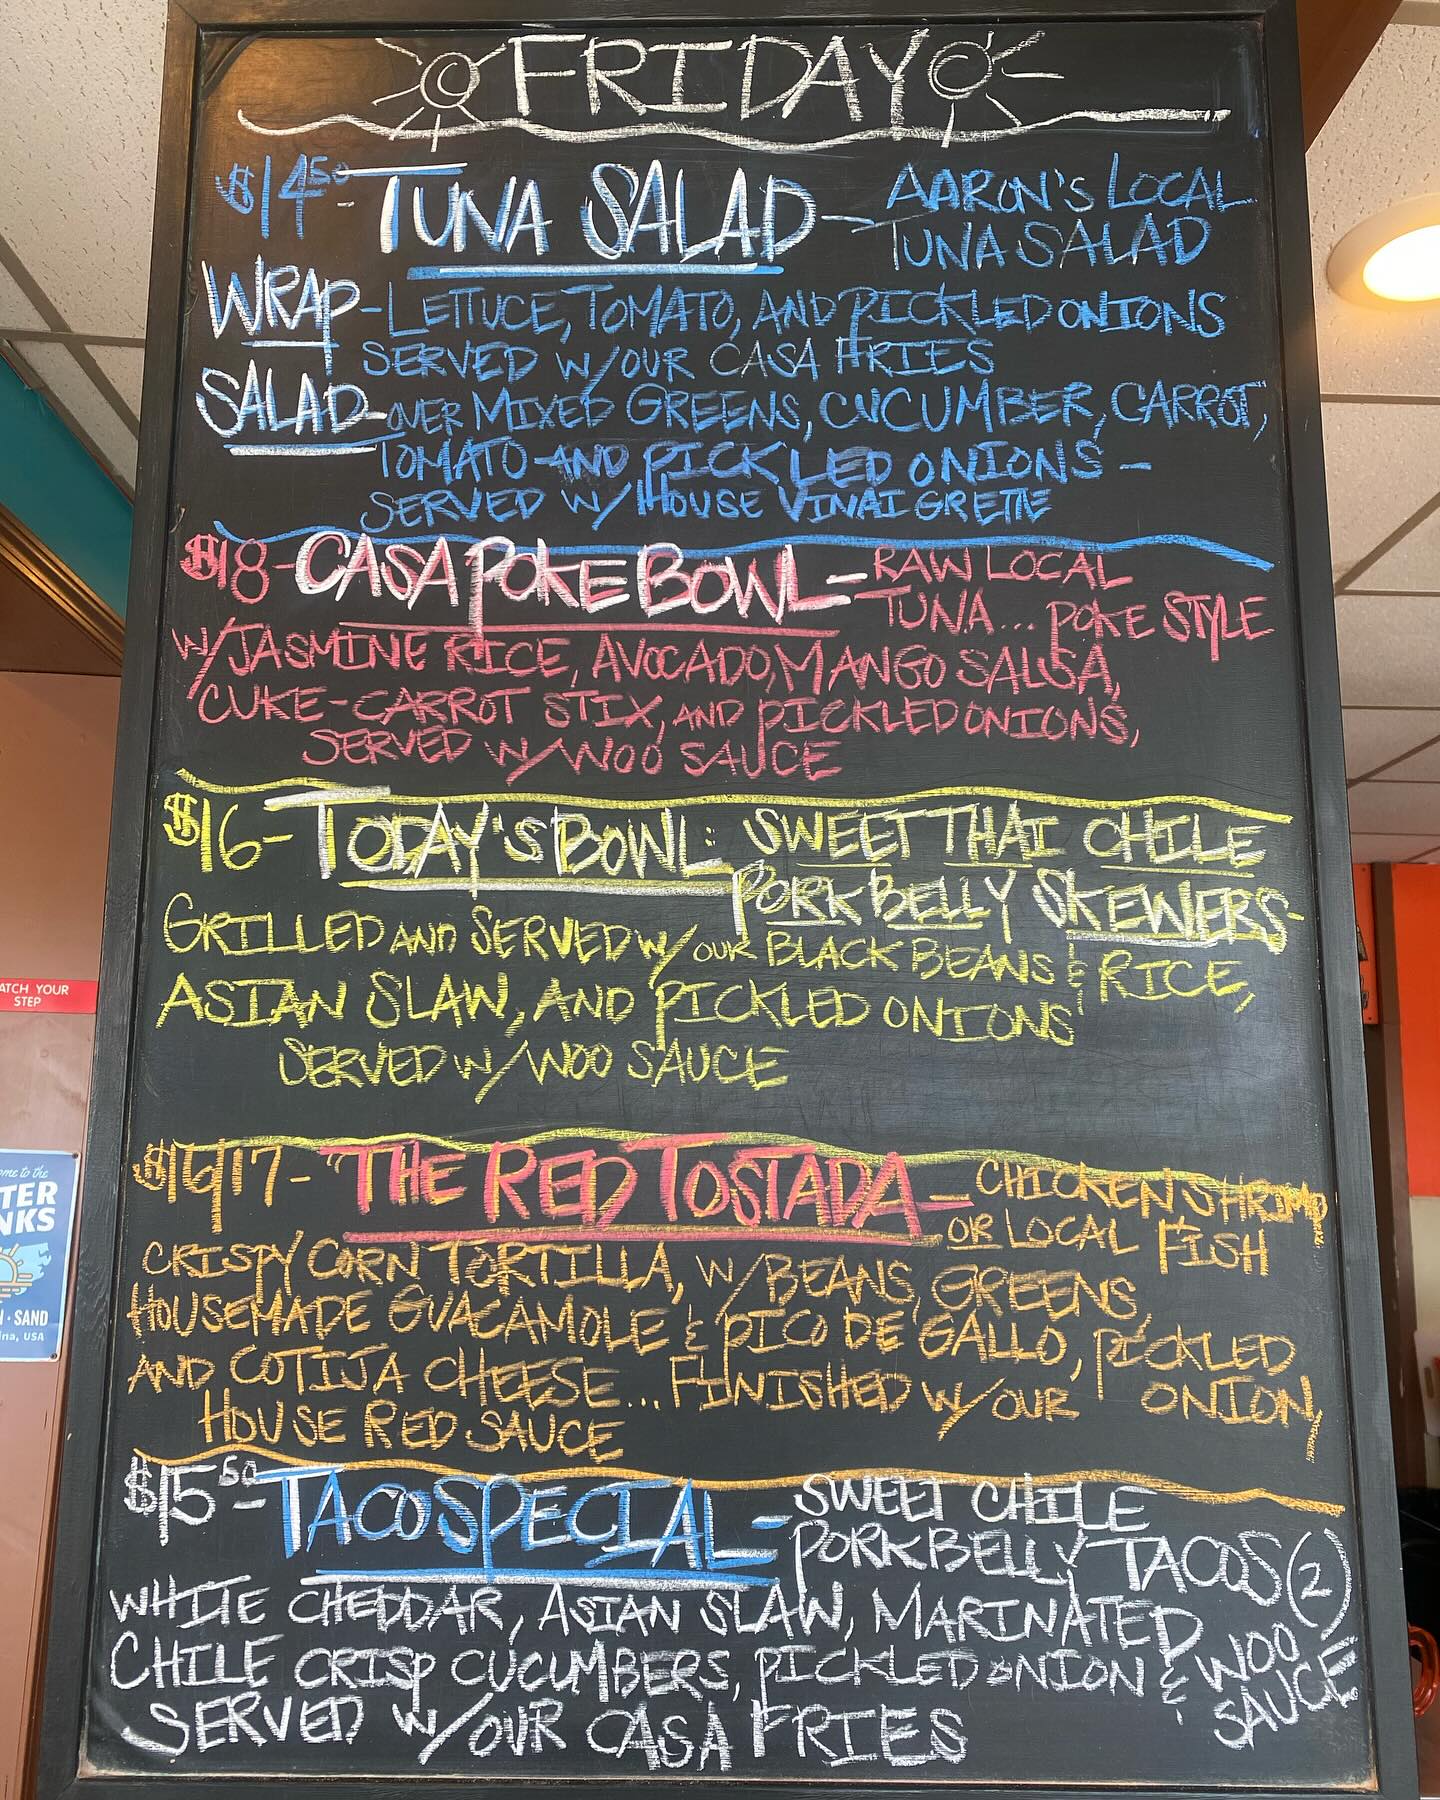 FRIDAY
$14.50 - TUNA SALAD - AARON'S LOCAL
TUNA SALAD
WRAP - LETTUCE, TOMATO, AND PICKLED ONIONS
SERVED W/OUR CASA FRIES
SALAD - OVER MIXED GREENS, CUCUMBER, CARROT,
TOMATO AND PICKLED ONIONS -
SERVED W/HOUSE VINAIGRETTE
$18 - CASA POKE BOWL - RAW LOCAL
TUNA... POKE STYLE
W/JASMINE RICE, AVOCADO, MANGO SALSA,
CUKE-CARROT STIX, AND PICKLED ONIONS,
SERVED W/WOO SAUCE
$16 - TODAY'S BOWL: SWEET THAI CHILE
PORK BELLY SKEWERS -
GRILLED AND SERVED W/OUR BLACK BEANS & RICE,
ASIAN SLAW, AND PICKLED ONIONS
SERVED W/WOO SAUCE
$16/17 - "THE RED TOSTADA - CHICKEN SHRIMP
OR LOCAL FISH
CRISPY CORN TORTILLA, W/BEANS, GREENS,
HOUSEMADE GUACAMOLE & PICO DE GALLO, PICKLED
ONION,
AND COTIJA CHEESE... FINISHED W/OUR
HOUSE RED SAUCE
$15.50 - TACO SPECIAL - SWEET CHILE
PORK BELLY TACOS (2)
WHITE CHEDDAR, ASIAN SLAW, MARINATED
CHILE CRISP CUCUMBERS, PICKLED ONION & WOO
SAUCE
SERVED W/OUR CASA FRIES
ATCH YOUR
STEP
ome to the
TER
NKS
SAND
ina, USA